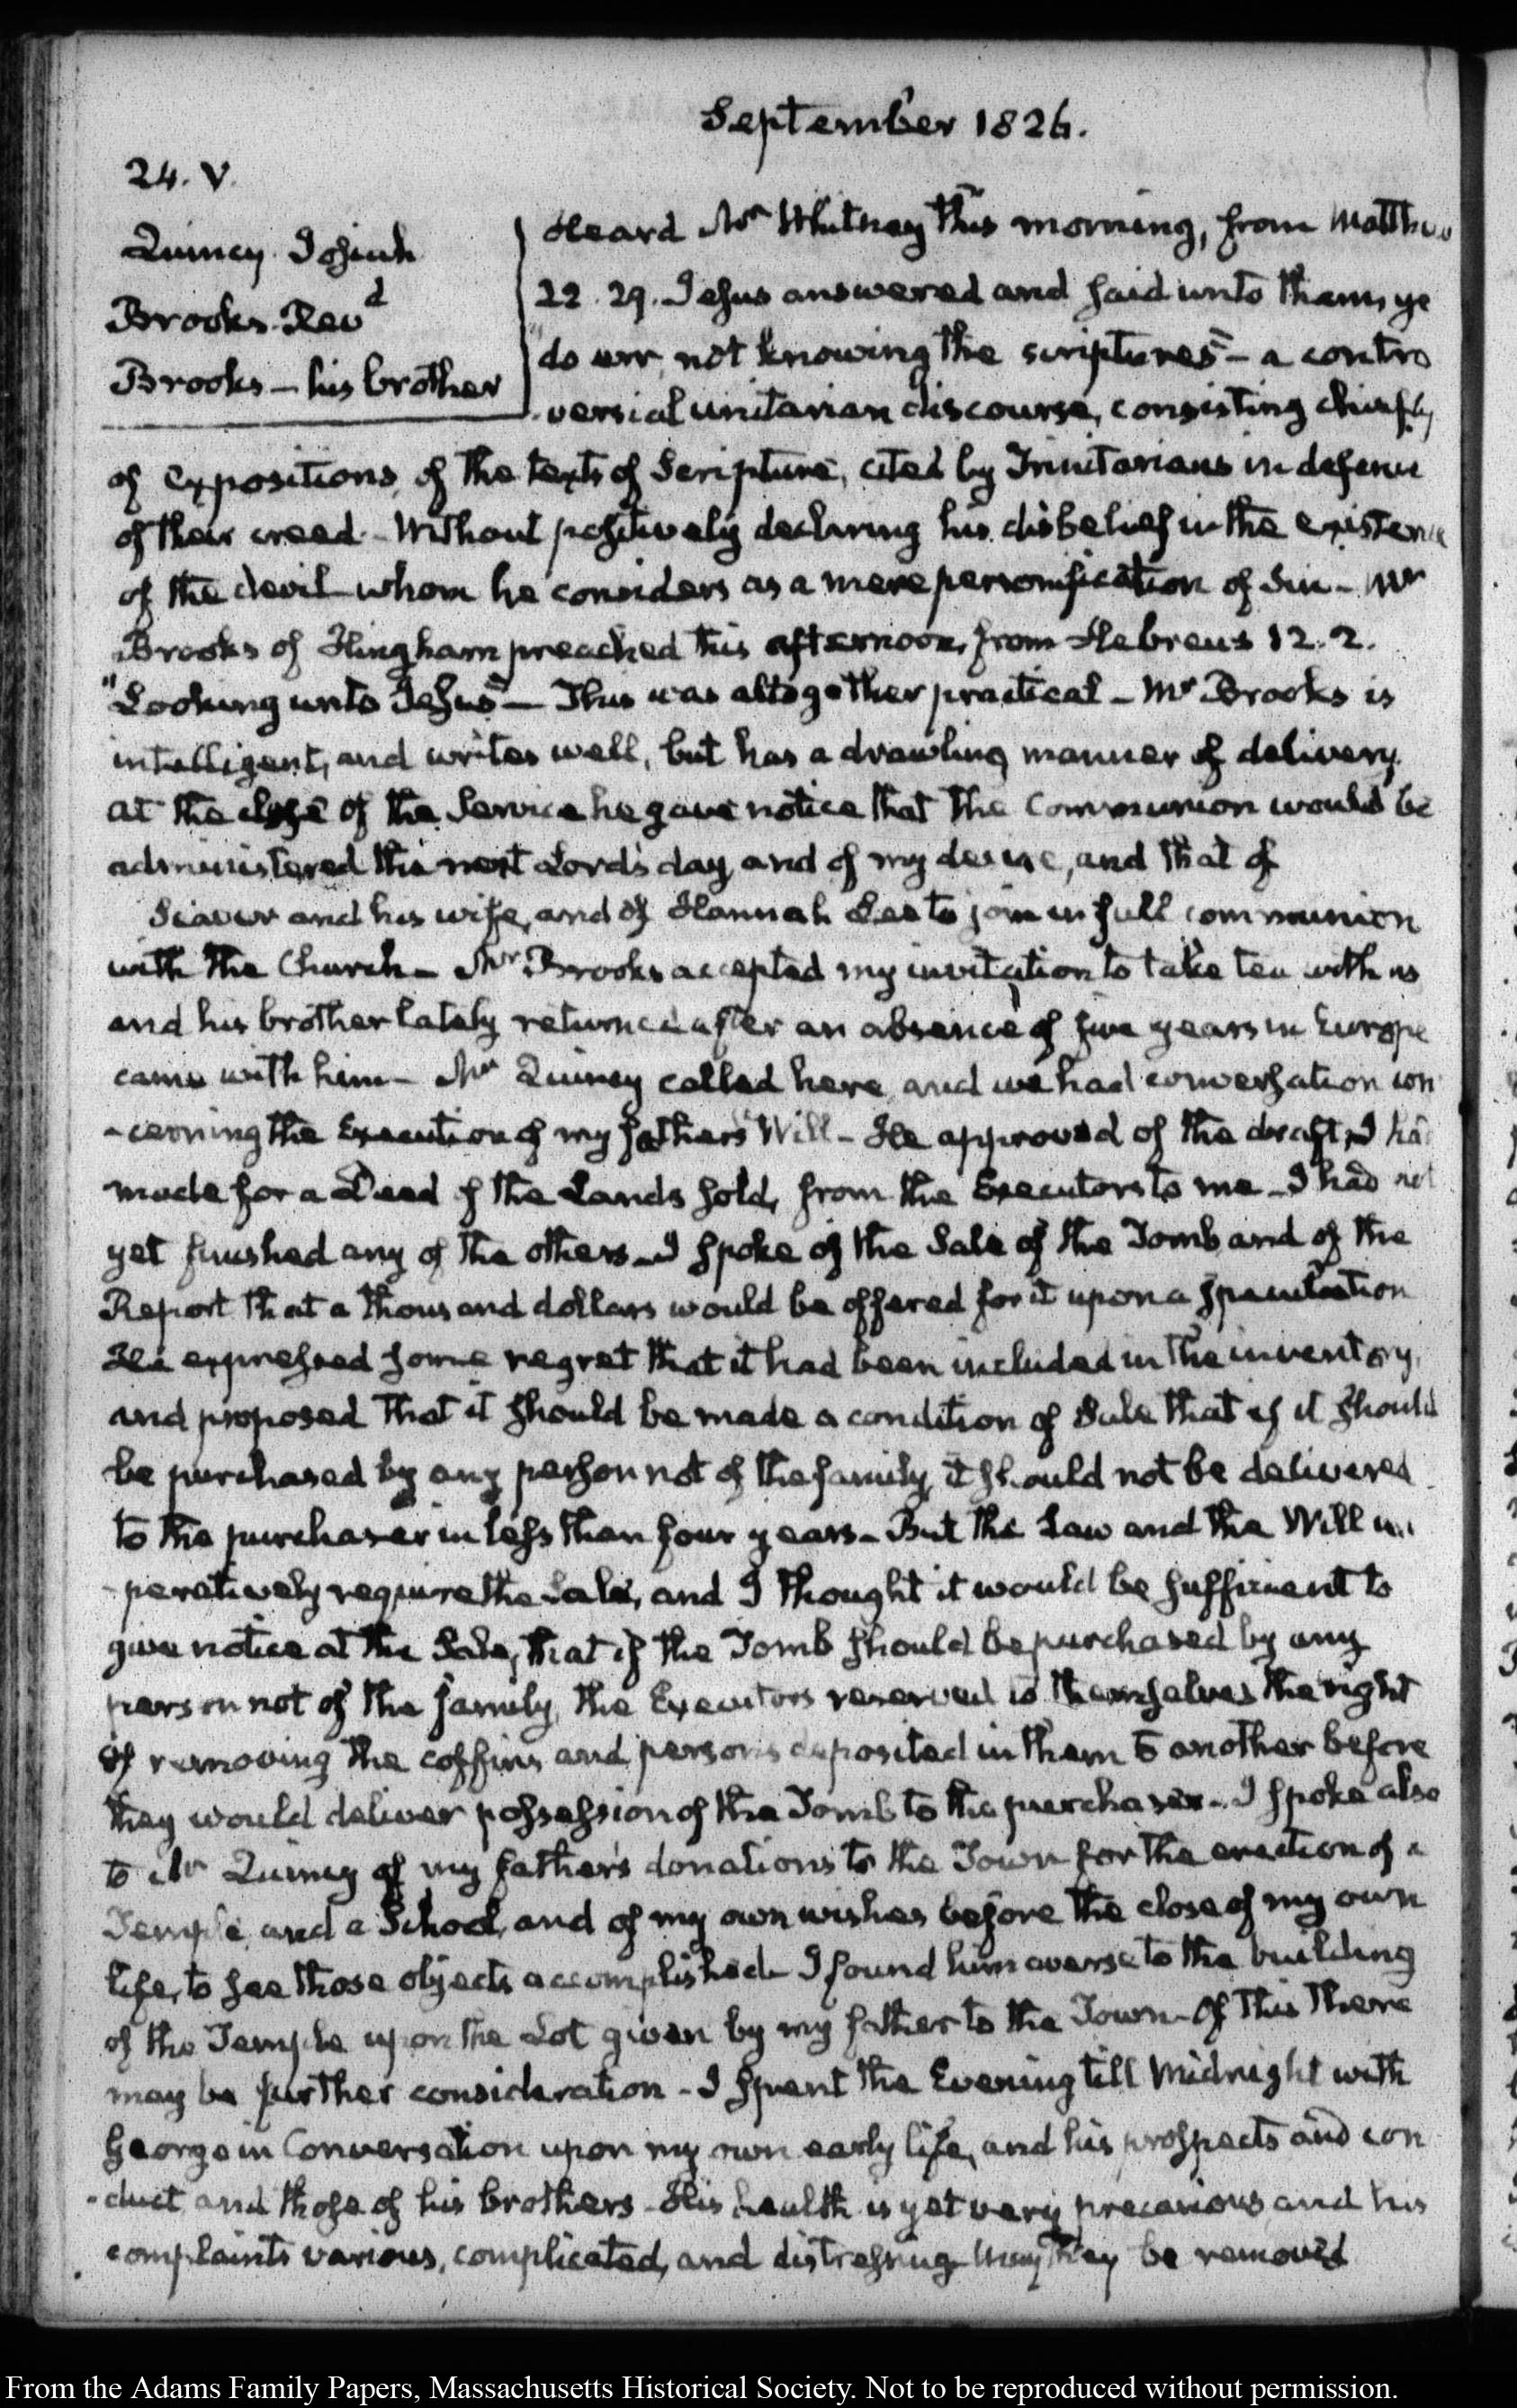 September 1826.
24. V.
Quincy. Josiah
Brooks. Revd
Brooks — his brother
Heard Mr Whitney this morning, from Matthew
22. 29. Jesus answered and said unto them, ye
"do err, not knowing the scriptures" — a contro
versial unitarian discourse, consisting chiefly
of expositions, of the texts of Scripture, cited by Trinitarians in defence
of their creed. — Without positively declaring his disbelief in the existence
of the devil whom he considers as a mere personification of Sin — Mr
Brooks of Hingham preached this afternoon, from Hebrews 12. 2.
"Looking unto Jesus" — This was altogether practical — Mr Brooks is
intelligent, and writes well, but has a drawling manner of delivery.
At the close of the Service he gave notice that the Communion would be
administered the next Lord's day, and of my desire, and that of
Seaver and his wife, and of Hannah Lee to join in full communion
with the Church — Mr Brooks accepted my invitation to take tea with us
and his brother lately returned after an absence of five years in Europe
came with him — Mr Quincy called here, and we had conversation con
-cerning the Execution of my father's Will — He approved of the draft, I had
made for a Deed of the Lands sold, from the Executors to me — I had not
yet finished any of the others — I spoke of the Sale of the Tomb, and of the
Report that a thousand dollars would be offered for it upon a speculation
He expressed some regret that it had been included in the inventory,
and proposed that it should be made a condition of Sale that if it should
be purchased by any person not of the family, it should not be delivered
to the purchaser in less than four years — But the Law and the Will im
-peratively require the Sale, and I thought it would be sufficient to
give notice at the Sale, that if the Tomb should be purchased by any
person not of the family, the Executors reserved to themselves the right
of removing the coffins and persons deposited in them to another before
they would deliver possession of the Tomb to the purchaser — I spoke also
to Mr Quincy of my father's donations to the Town for the erection of a
Temple, and a School, and of my own wishes before the close of my own
life, to see those objects accomplished — I found him averse to the building
of the Temple upon the Lot given by my father to the Town — Of this there
may be further consideration — I spent the Evening till Midnight with
George in Conversation upon my own early life, and his prospects and con
-duct, and those of his brothers — His health is yet very precarious, and his
complaints various, complicated, and distressing — May they be removed
From the Adams Family Papers, Massachusetts Historical Society. Not to be reproduced without permission.